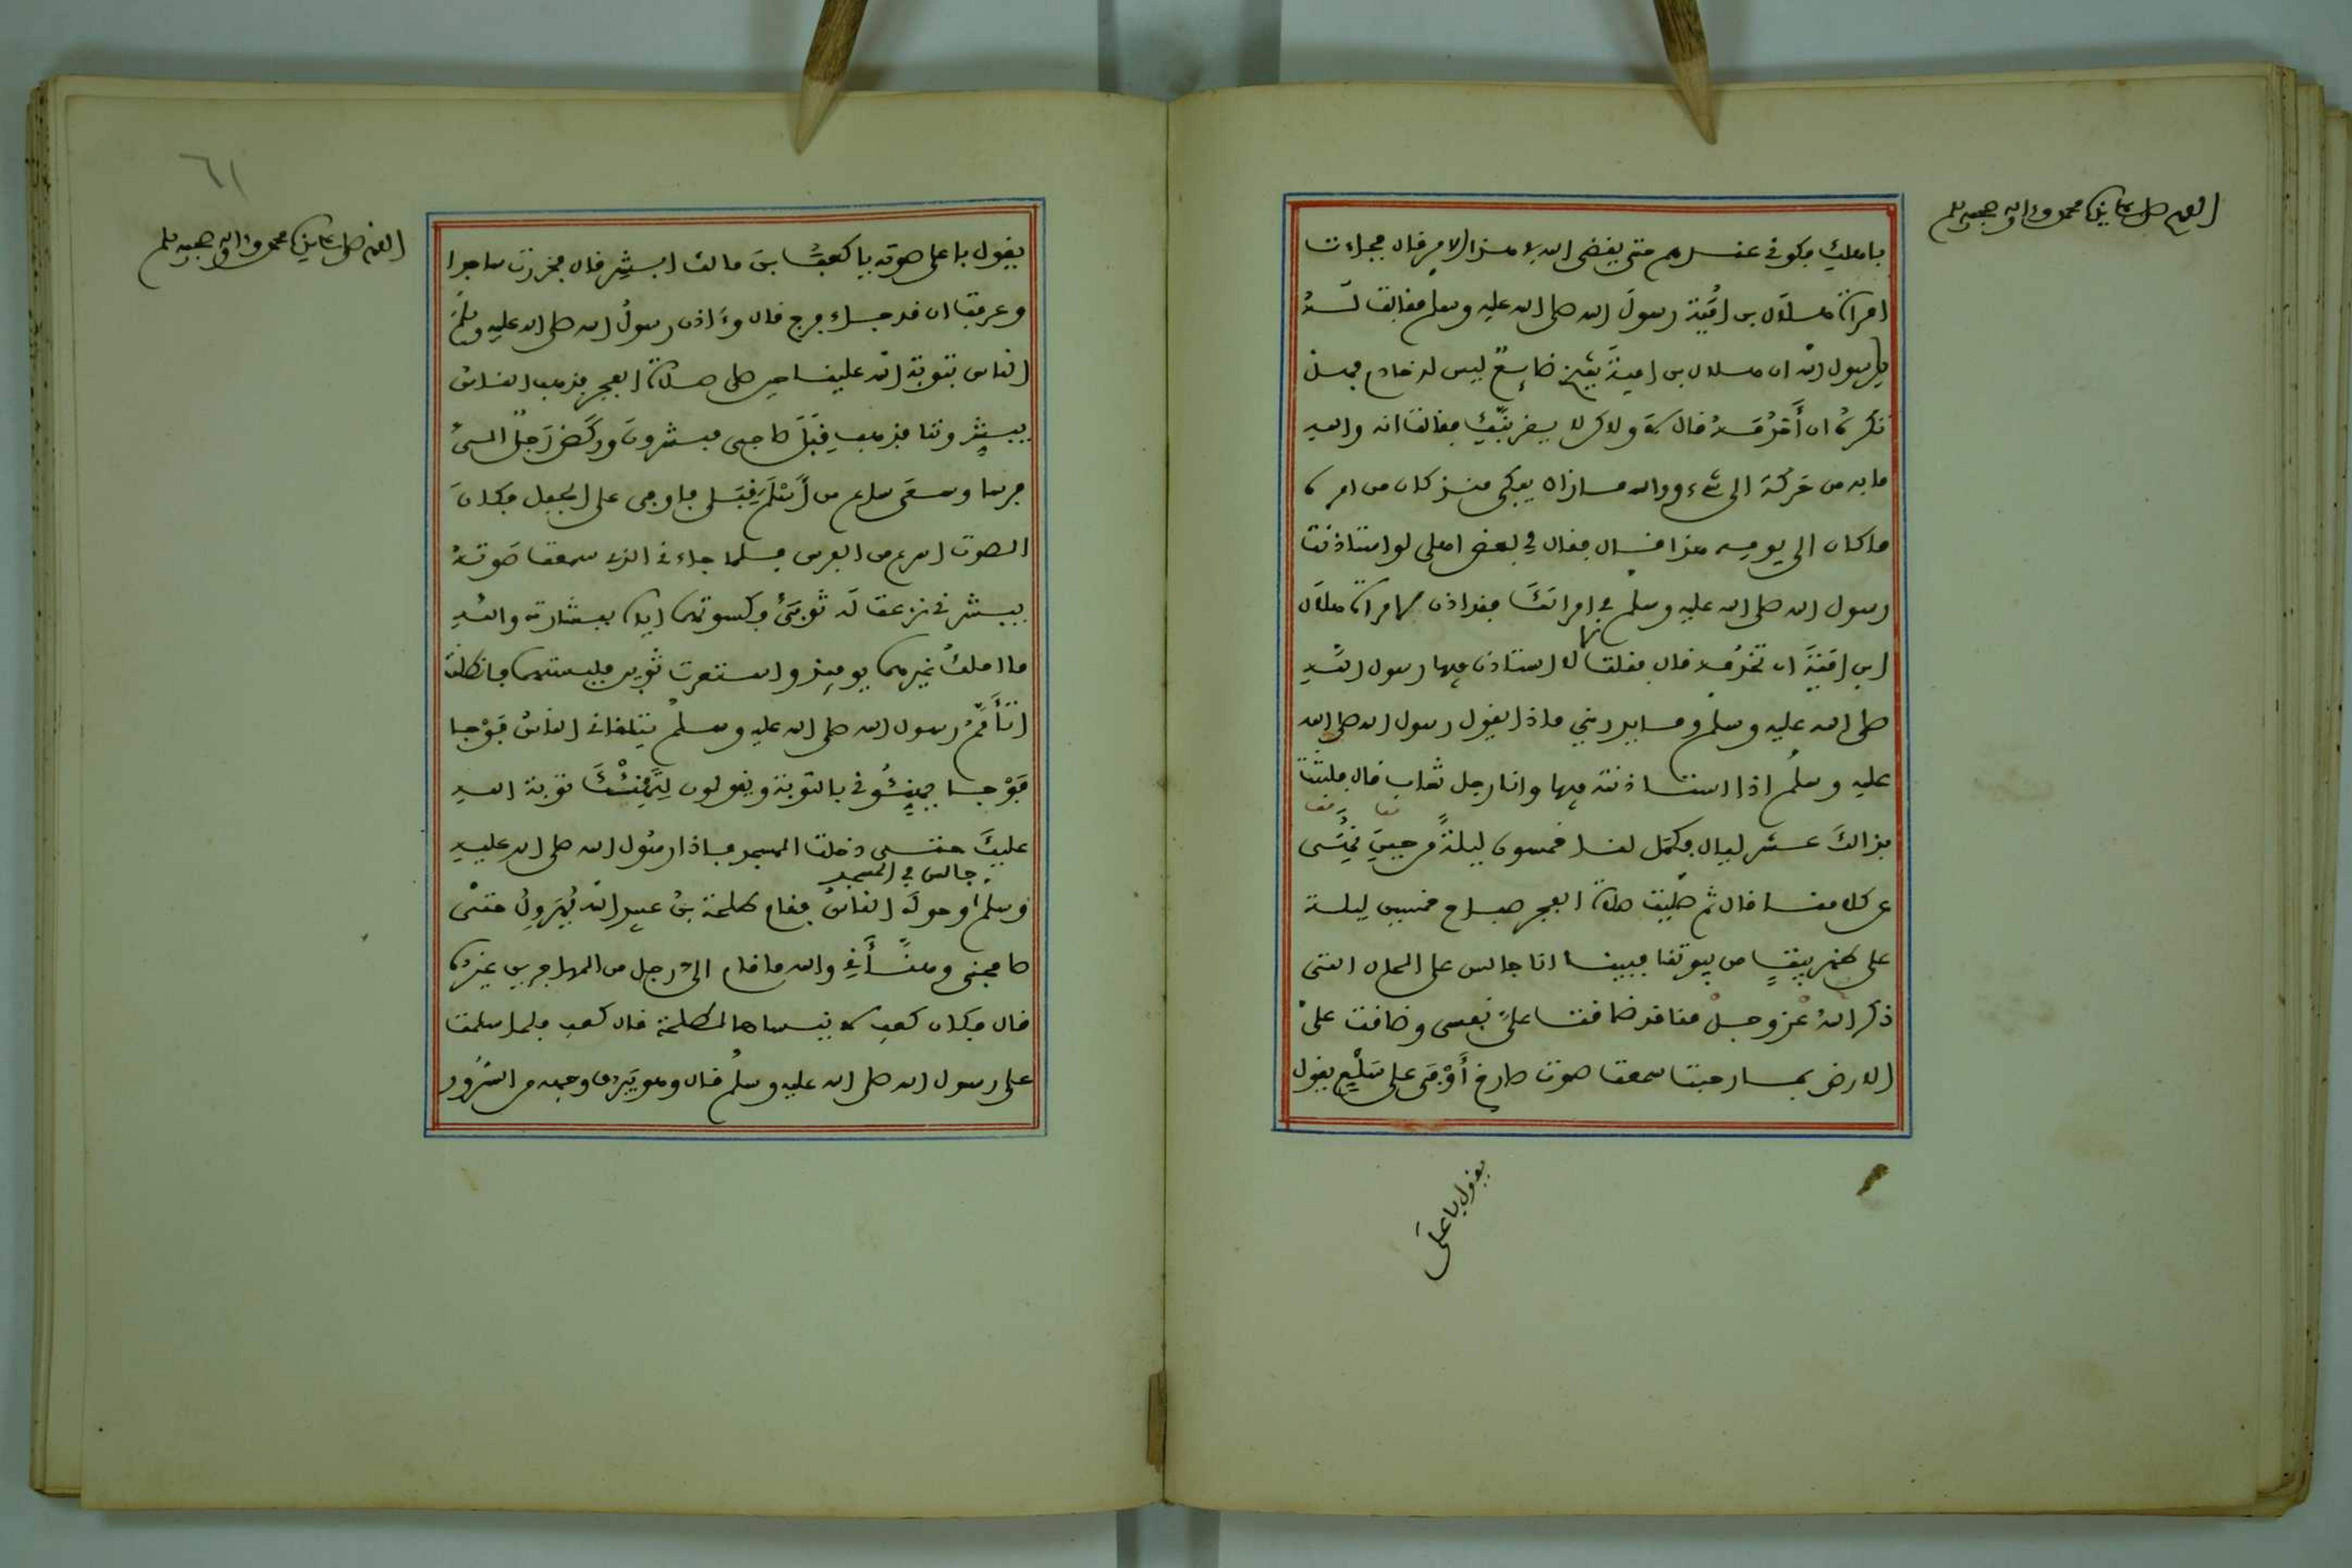 اللهم صل على نبينا محمد وءاله وصحبه وسلم
باهلك فكونى عندهم حتى يقضى الله في هذا الامر قال فجاءت
امراة هلال بن امية رسول الله صلى الله عليه وسلم فقالت له
يا رسول الله ان هلال بن امية شيخ ضايع ليس له خادم فهل
تكره ان أخدمه قال لا ولاكن لا يقربنك فقالت انه والله
ما به من حركة الى شىء ووالله مازال يبكى منذ كان من امره
ما كان الى يومه هذا قال فقال لى بعض اهلى لو استاذنت
رسول الله صلى الله عليه وسلم في امراتك فقد اذن لامراة هلال
ابن امية ان تخدمه قال فقلت لا استاذن فيها رسول الله
صلى الله عليه وسلم وما يدرينى ماذا يقول رسول الله صلى الله
عليه وسلم اذا استاذنته فيها وانا رجل شاب قال فلبثت
بذالك عشر ليال فكمل لنا خمسون ليلة من حين نهى
عن كلامنا قال ثم صليت صلاة الفجر صباح خمسين ليلة
على ظهر بيت من بيوتنا فبينا انا جالس على الحال التى
ذكر الله عز وجل منا قد ضاقت على نفسى وضاقت على
الارض بما رحبت سمعت صوت صارخ أوفى على سلع يقول
يقول باعلى
٦١
اللهم صل على نبينا محمد وءاله وصحبه وسلم
يقول باعلى صوته يا كعب بن مالك ابشر قال فخررت ساجدا
وعرفت ان قد جاء فرج قال وءاذن رسول الله صلى الله عليه وسلم
الناس بتوبة الله علينا حين صلى صلاة الفجر فذهب الناس
يبشروننا فذهب قبل صاحبى مبشرون وركض رجل الى
فرسا وسعى ساع من أسلم قبلى فاوفى على الجبل فكان
الصوت اسرع من الفرس فلما جاءنى الذى سمعت صوته
يبشرنى نزعت له ثوبى فكسوتهما اياه ببشارته والله
ما املك غيرهما يومئذ واستعرت ثوبين فلبستهما فانطلقت
اتأمم رسول الله صلى الله عليه وسلم يتلقانى الناس فوجا
فوجا يهنئونى بالتوبة ويقولون لتهنئك توبة الله
عليك حتى دخلت المسجد فاذا رسول الله صلى الله عليه
جالس في المسجد
وسلم وحوله الناس فقام طلحة بن عبيد الله يهرول حتى
صافحنى وهنأنى والله ما قام الى رجل من المهاجرين غيره
قال فكان كعب لا ينساها لطلحة قال كعب فلما سلمت
على رسول الله صلى الله عليه وسلم قال وهو يبرق وجهه من السرور